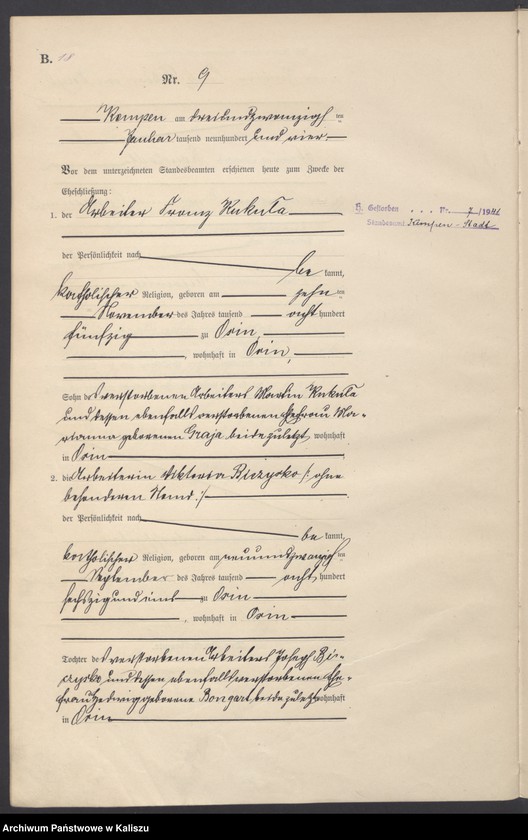 B. 18
Nr. 9
Kempen am dreiundzwanzigsten
Januar tausend neunhundert und vier.
Vor dem unterzeichneten Standesbeamten erschienen heute zum Zwecke der
Eheschließung:
1. der Arbeiter Franz Kukuła
H. Gestorben . . . Nr. 7/1941
Standesamt Kempen-Stadt
der Persönlichkeit nach
be kannt,
katholischer Religion, geboren am zehnten
November des Jahres tausend acht hundert
fünfzig zu Osin,
, wohnhaft in Osin,
Sohn des verstorbenen Arbeiters Martin Kukuła
und dessen ebenfalls verstorbenen Ehefrau Ma-
rianna geborenen Graja beide zuletzt wohnhaft
in Osin
2. die Arbeiterin Viktoria Biczysko /: ohne
besonderen :/
der Persönlichkeit nach
be kannt,
katholischer Religion, geboren am neunundzwanzigsten
September des Jahres tausend acht hundert
sechszig und eins zu Osin
, wohnhaft in Osin
Tochter des verstorbenen Arbeiters Joseph Bi-
czysko und dessen ebenfalls verstorbenen Ehe-
frau Hedwig geborene Bongart beide zuletzt wohnhaft
in Osin
Archiwum Państwowe w Kaliszu